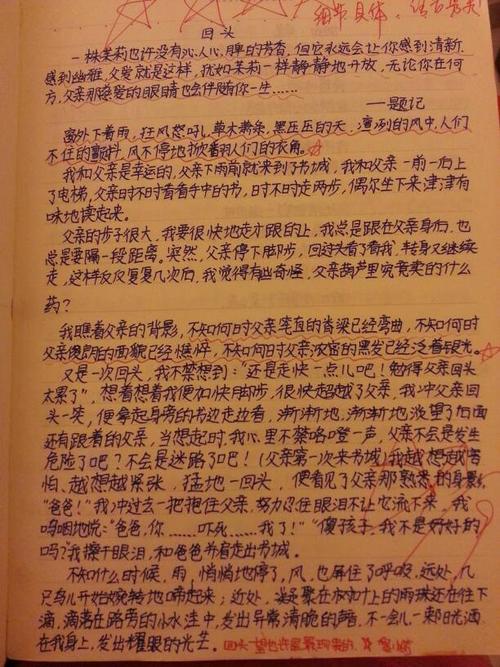 细节具体,
回头
一株茉莉也许没有沁人心脾的芳香,但它永远会让你感到清新
感到幽雅,父爱就是这样,犹如茉莉一样静静地开放,无论你在何
方,父亲那疼爱的眼睛也会伴随你一生……
——题记
窗外下着雨,狂风怒吼,草木萧条,黑压压的天,凛冽的风中,人们
不住的颤抖,风不停地掀着人们的衣角。
我和父亲是幸运的,父亲下雨前就来到了书城,我和父亲一前一后上
了电梯,父亲时不时看看手中的书,时不时走两步,偶尔坐下来津津有
味地读起来。
父亲的步子很大,我要很快地走才跟的上,我总是跟在父亲身后,也
总是要隔一段距离。突然,父亲停下脚步,回过头看了看我,转身又继续
走,这样反反复复几次后,我觉得有些奇怪,父亲葫芦里究竟卖的什么
药?
我瞧着父亲的背影,不知何时父亲笔直的脊梁已经弯曲,不知何时
父亲俊朗的面貌已经憔悴,不知何时父亲浓密的黑发已经泛着银光。
又是一次回头,我不禁想到:“还是走快一点儿吧!免得父亲回头
太累了”,想着想着我便加快脚步,很快超越了父亲,我冲父亲回
头一笑,便拿起身旁的书边走边看,渐渐地,渐渐地没望了后面
还有跟着的父亲,当想起时,我心里不禁咯噔一声,父亲不会是发生
危险了吧?不会是迷路了吧!(父亲第一次来书城)我越想越害
怕、越想越紧张,猛地一回头,便看见了父亲那熟悉的身影,
“爸爸!”我冲过去一把抱住父亲,努力忍住眼泪不让它流下来,我
呜咽地说:“爸爸,你……吓死……我了!”“傻孩子,我不是好好的
吗?我擦干眼泪,和爸爸并肩走出书城。
不知什么时候,雨,悄悄地停了,风,也屏住了呼吸,远处,几
只鸟儿开始婉转地啼起来;近处,凝聚在树叶上的雨珠还在往下
滴,滴落在路旁的小水洼中,发出异常清脆的声音,不一会儿一束阳光洒
在我身上,发出耀眼的光芒。
回头一望也许是最珍贵的。